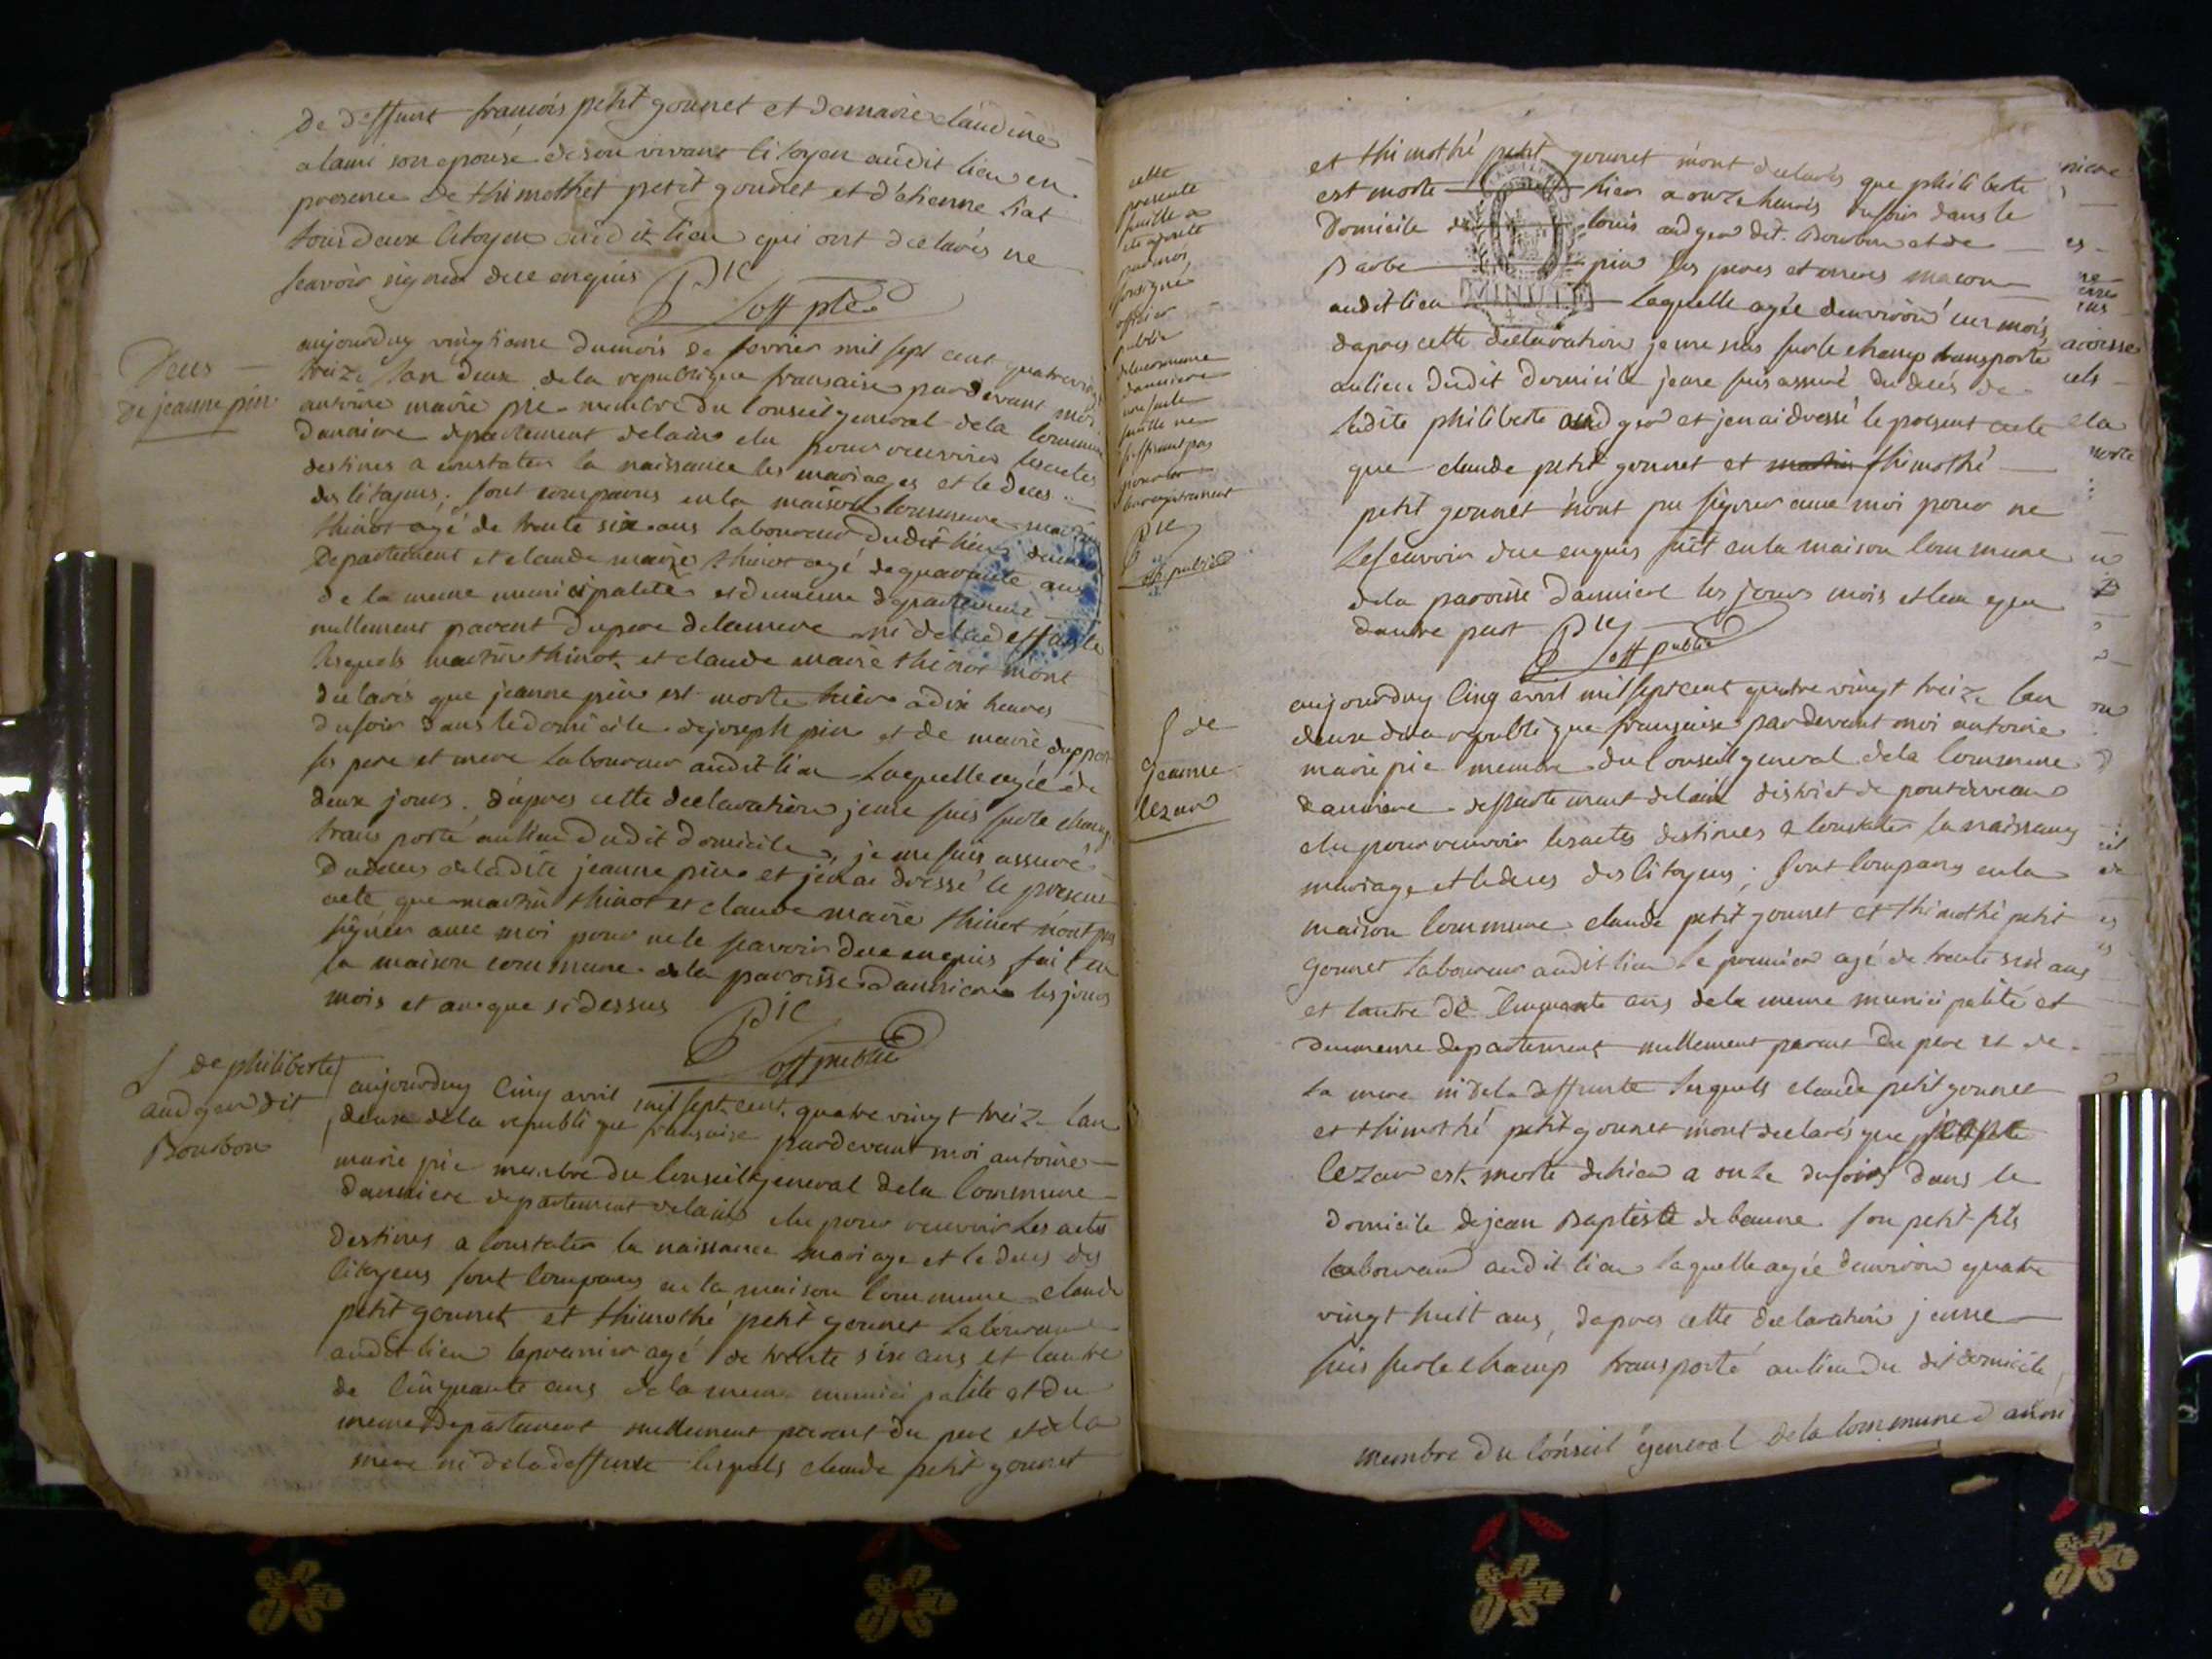 De deffunt françois petit gonnet et de marie claudine
alami son epouse de son vivant citoyen audit lieu en
presence de thimothét petit gonnet et d'etienne
tous deux citoyen audit lieu qui ont declarés ne
scavoir signer due enquis Pic
off plic
Deces
De jeanne pin
aujourduy vingtieme du mois de fevrier mil sept cent quatre vingt
treize lan deux de la republique fransaise pardevant moi
antoine marie pic membre du Conseil general dela Commune
danniere departement delain elu pour recevoir les actes
destinés a constater la naissance les mariages et le deces
des citoyens. sont comparus en la maison Commune martin
thinot agé de trente six ans laboureur dudit lieu du meme
Departement et claude marie thinot agé de quarante ans
de la meme municipalité et du meme departement
nullement parent du pere de la mere ni de la deffunte
lesquels martin thinot et claude marie thinot mont
declarés que jeanne pin est morte hier a dix heures
du soir dans le domicile de joseph pin et de marie
ses pere et mere laboureur audit lieu laquelle agée de
deux jours. d'apres cette declaration je me suis sur le champ
transporté au lieu dudit domicile, je me suis assuré
du deces de ladite jeanne pin et j'en ai dressé le present
acte que martin thinot et claude marie thinot n'ont pu
signer avec moi pour ne le scavoir due enquis fait en
la maison commune de la paroisse danniere les jours
mois et an que si dessus
Pic
off public
de philiberte
audger dit
Bourbon
aujourduy Cinq avril mil sept cent quatre vingt treize lan
deux dela republique fransaise pardevant moi antoine
marie pic membre du Conseil general dela Commune
danniere departement delain elu pour recevoir les actes
destinés a constater la naissance mariage et le deces des
citoyens sont comparus en la maison Commune claude
petit gonnet et thimothé petit gonnet laboureur
audit lieu le premier agé de trente six ans et lautre
de Cinquante ans de la meme municipalité et du
meme Departement nullement parent du pere et de la
mere ni de la deffunte lesquels claude petit gonnet
cette
presente
feuille a
ete ajouté
par moi
sousigné
officier
public
de la commune
danniere
une seule
feuille ne
suffisant pas
pour le
Pic
off public
et thimothé petit gonnet m'ont declarés que philiberte
est morte hier a onze heures du soir dans le
Domicile de louis audger dit. Bourbon et de
Barbe pin ses peres et meres macon
audit lieu laquelle agée d'environ un mois
dapres cette declaration je me suis sur le champ transporté
au lieu dudit domicile je me suis assuré du deces de
ladite philiberte audger et j'en ai dressé le present acte
que claude petit gonnet et thimothé
petit gonnet n'ont pu signer avec moi pour ne
le scavoir due enquis fait en la maison Commune
de la paroisse danniere les jours mois et an
dautre part Pic
off public
MINUTE
de
jeanne
lezar
aujourduy Cinq avril mil sept cent quatre vingt treize lan
deux de la republique fransaise pardevant moi antoine
marie pic membre du Conseil general dela Commune
danniere departement delain district de pontdeveaux
elu pour recevoir les actes destinés a constater la naissance
mariage et le deces des citoyens; sont comparus en la
maison Commune claude petit gonnet et thimothé petit
gonnet laboureur audit lieu le premier agé de trente six ans
et lautre de Cinquante ans de la meme municipalité et
du meme departement nullement parent du pere et de
la mere ni de la deffunte lesquels claude petit gonnet
et thimothé petit gonnet m'ont declarés que
lezar est morte d'hier a onze du soir dans le
domicile de jean Baptiste debaune son petit fils
laboureur audit lieu laquelle agée denviron quatre
vingt huit ans, dapres cette declaration je me
suis sur le champ transporté au lieu du dit domicile
membre du Conseil general de la Commune d'